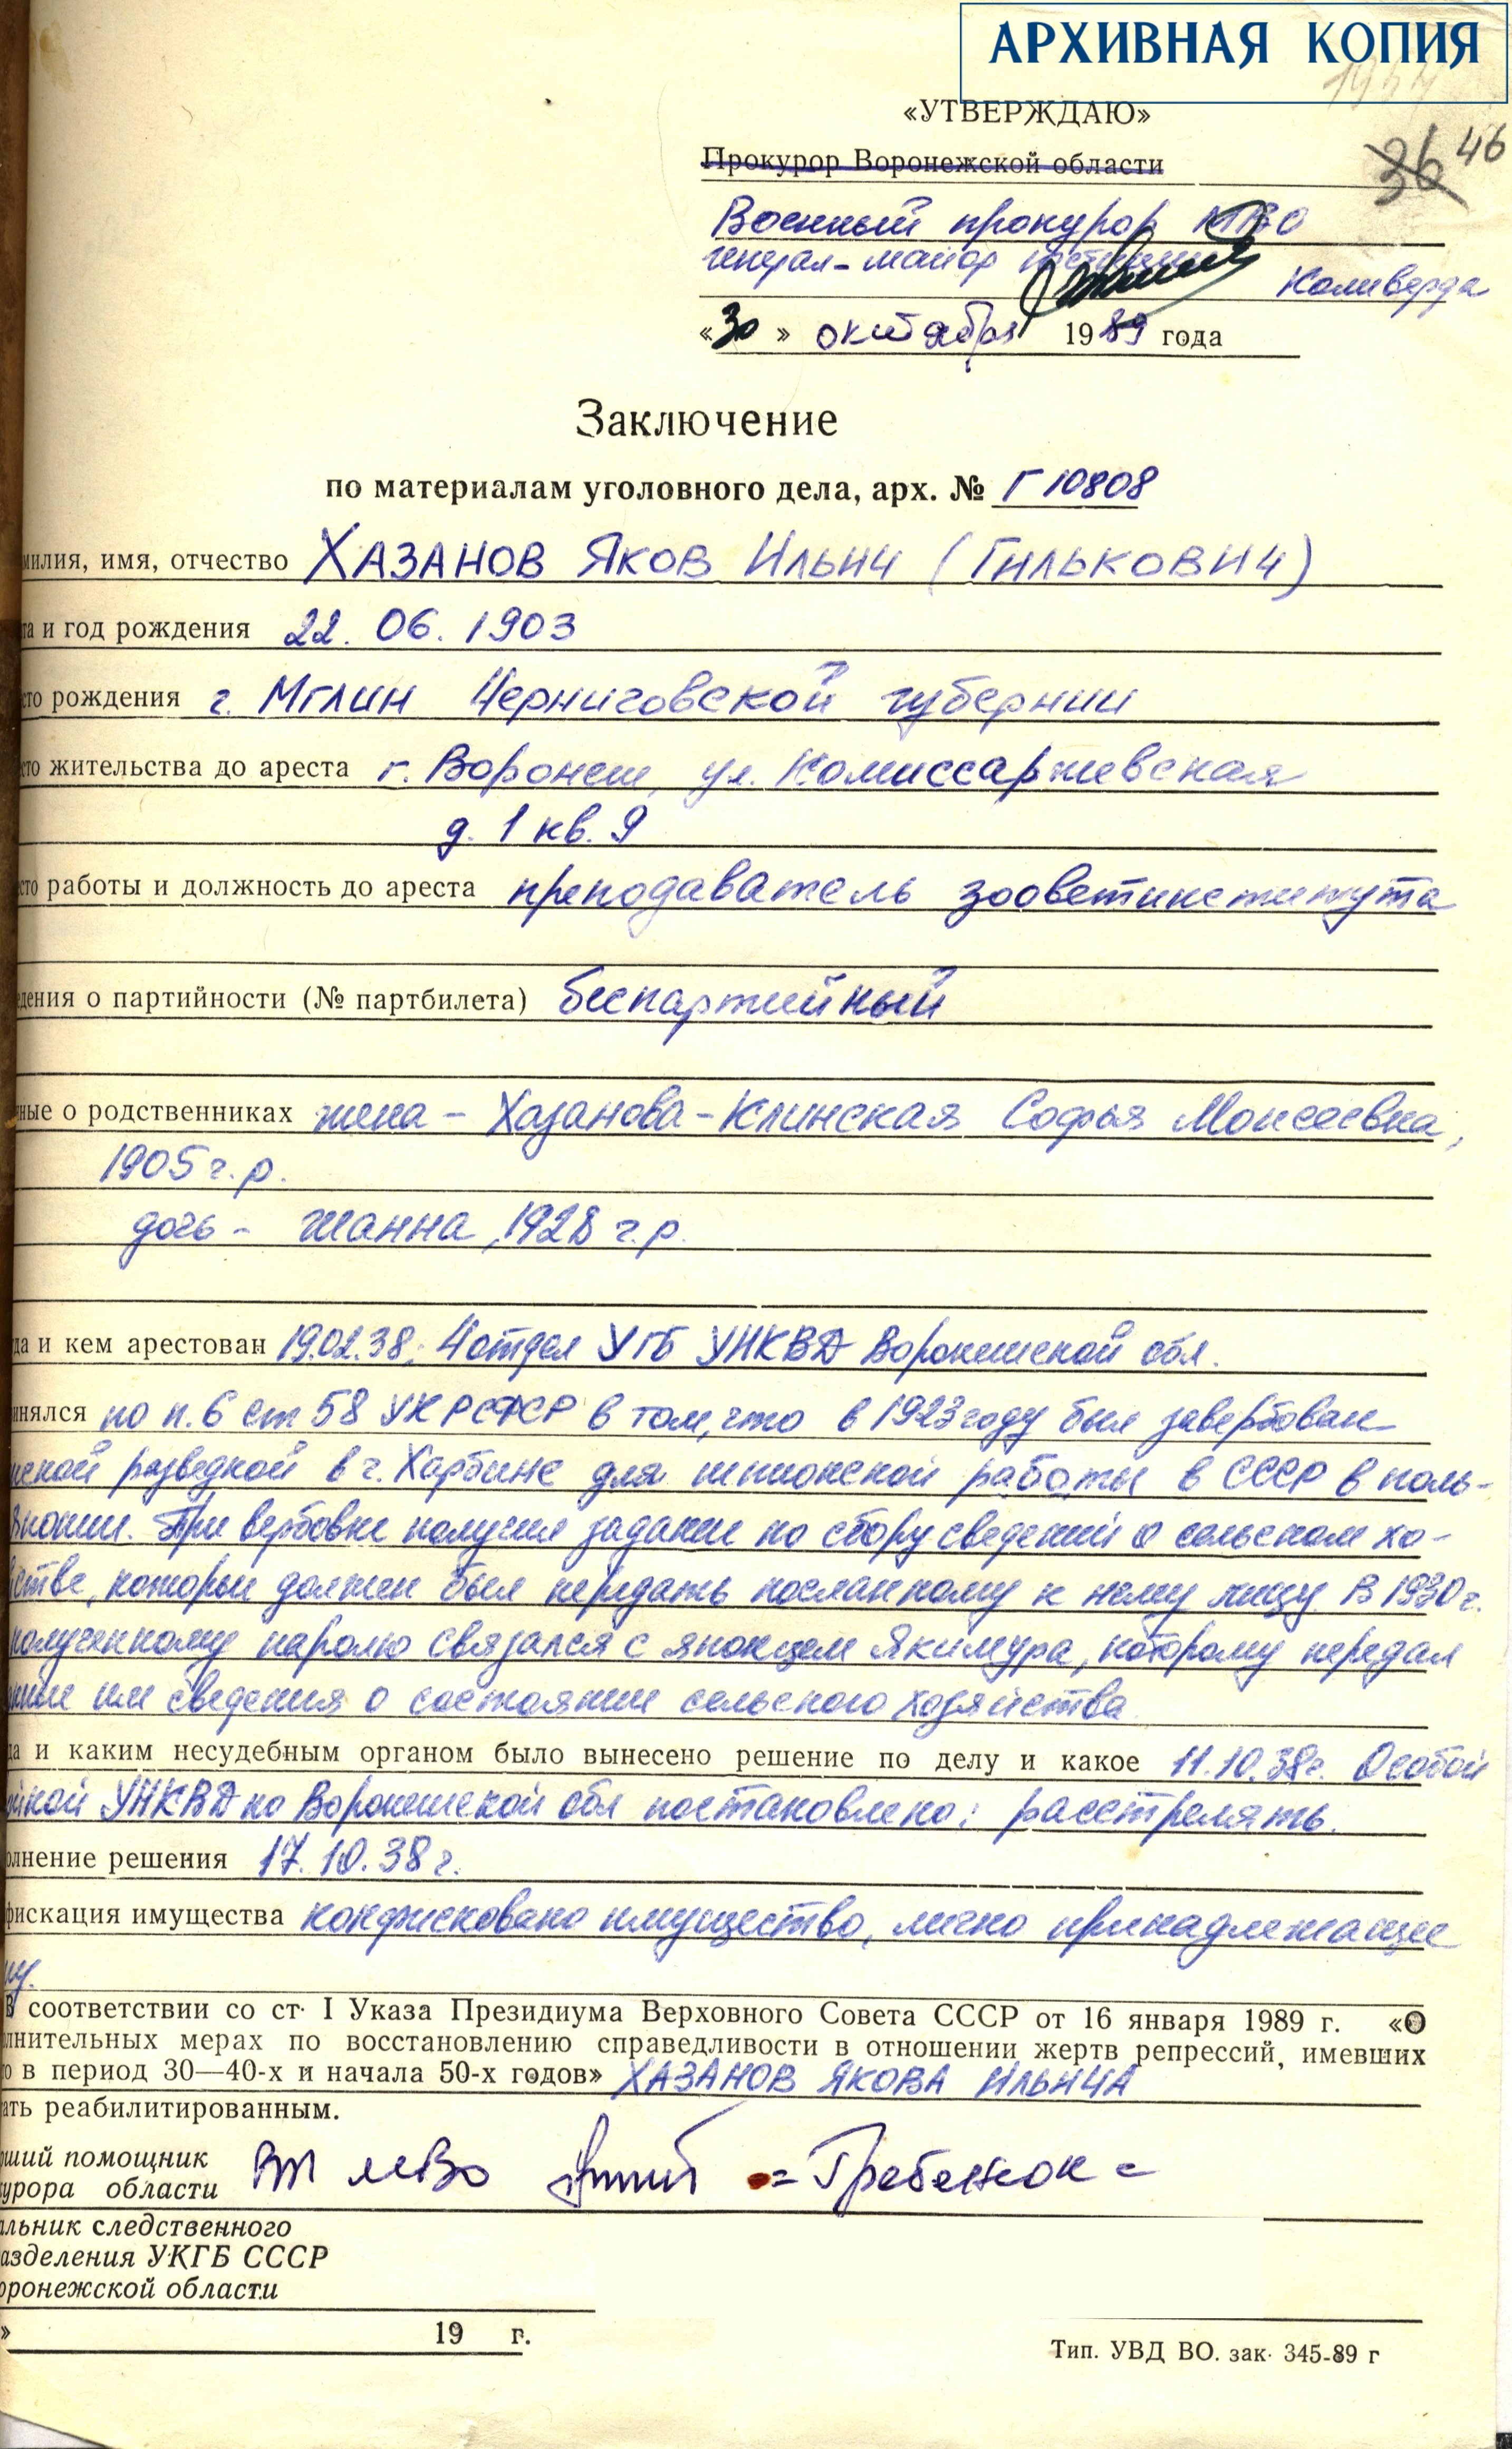 АРХИВНАЯ КОПИЯ
«УТВЕРЖДАЮ»
Прокурор Воронежской области
36 46
Военный прокурор МВО
генерал-майор юстиции Коливерда
«30» октября 1989 года
Заключение
по материалам уголовного дела, арх. № Г 10808
милия, имя, отчество ХАЗАНОВ ЯКОВ ИЛЬИЧ (ГИЛЬКОВИЧ)
та и год рождения 22.06.1903
сто рождения г. Мглин Черниговской губернии
сто жительства до ареста г. Воронеж, ул. Комиссаржевская
д. 1 кв. 9
сто работы и должность до ареста преподаватель зооветинститута
едения о партийности (№ партбилета) беспартийный
нные о родственниках жена – Хазанова-Клинская Софья Моисеевна,
1905 г.р.
дочь – Жанна, 1928 г.р.
да и кем арестован 19.02.38; 4 отдел УГБ УНКВД Воронежской обл.
инялся по п. 6 ст 58 УК РСФСР в том, что в 1923 году был завербован
нской разведкой в г. Харбине для шпионской работы в СССР в поль-
Японии. При вербовке получил задание по сбору сведений о сельском хо-
йстве, которые должен был передать посланному к нему лицу. В 1930 г.
полученному паролю связался с японцем Якимура, которому передал
нные им сведения о состоянии сельского хозяйства.
да и каким несудебным органом было вынесено решение по делу и какое 11.10.38г. Особой
ойкой УНКВД по Воронежской обл постановлено: расстрелять.
олнение решения 17.10.38 г.
фискация имущества конфисковано имущество, лично принадлежащее
му.
В соответствии со ст. I Указа Президиума Верховного Совета СССР от 16 января 1989 г. «О
олнительных мерах по восстановлению справедливости в отношении жертв репрессий, имевших
то в период 30—40-х и начала 50-х годов» ХАЗАНОВ ЯКОВА ИЛЬИЧА
ать реабилитированным.
рший помощник
курора области ВП МВО =Гребенюк=
альник следственного
азделения УКГБ СССР
оронежской области
» 19 г.
Тип. УВД ВО. зак. 345-89 г